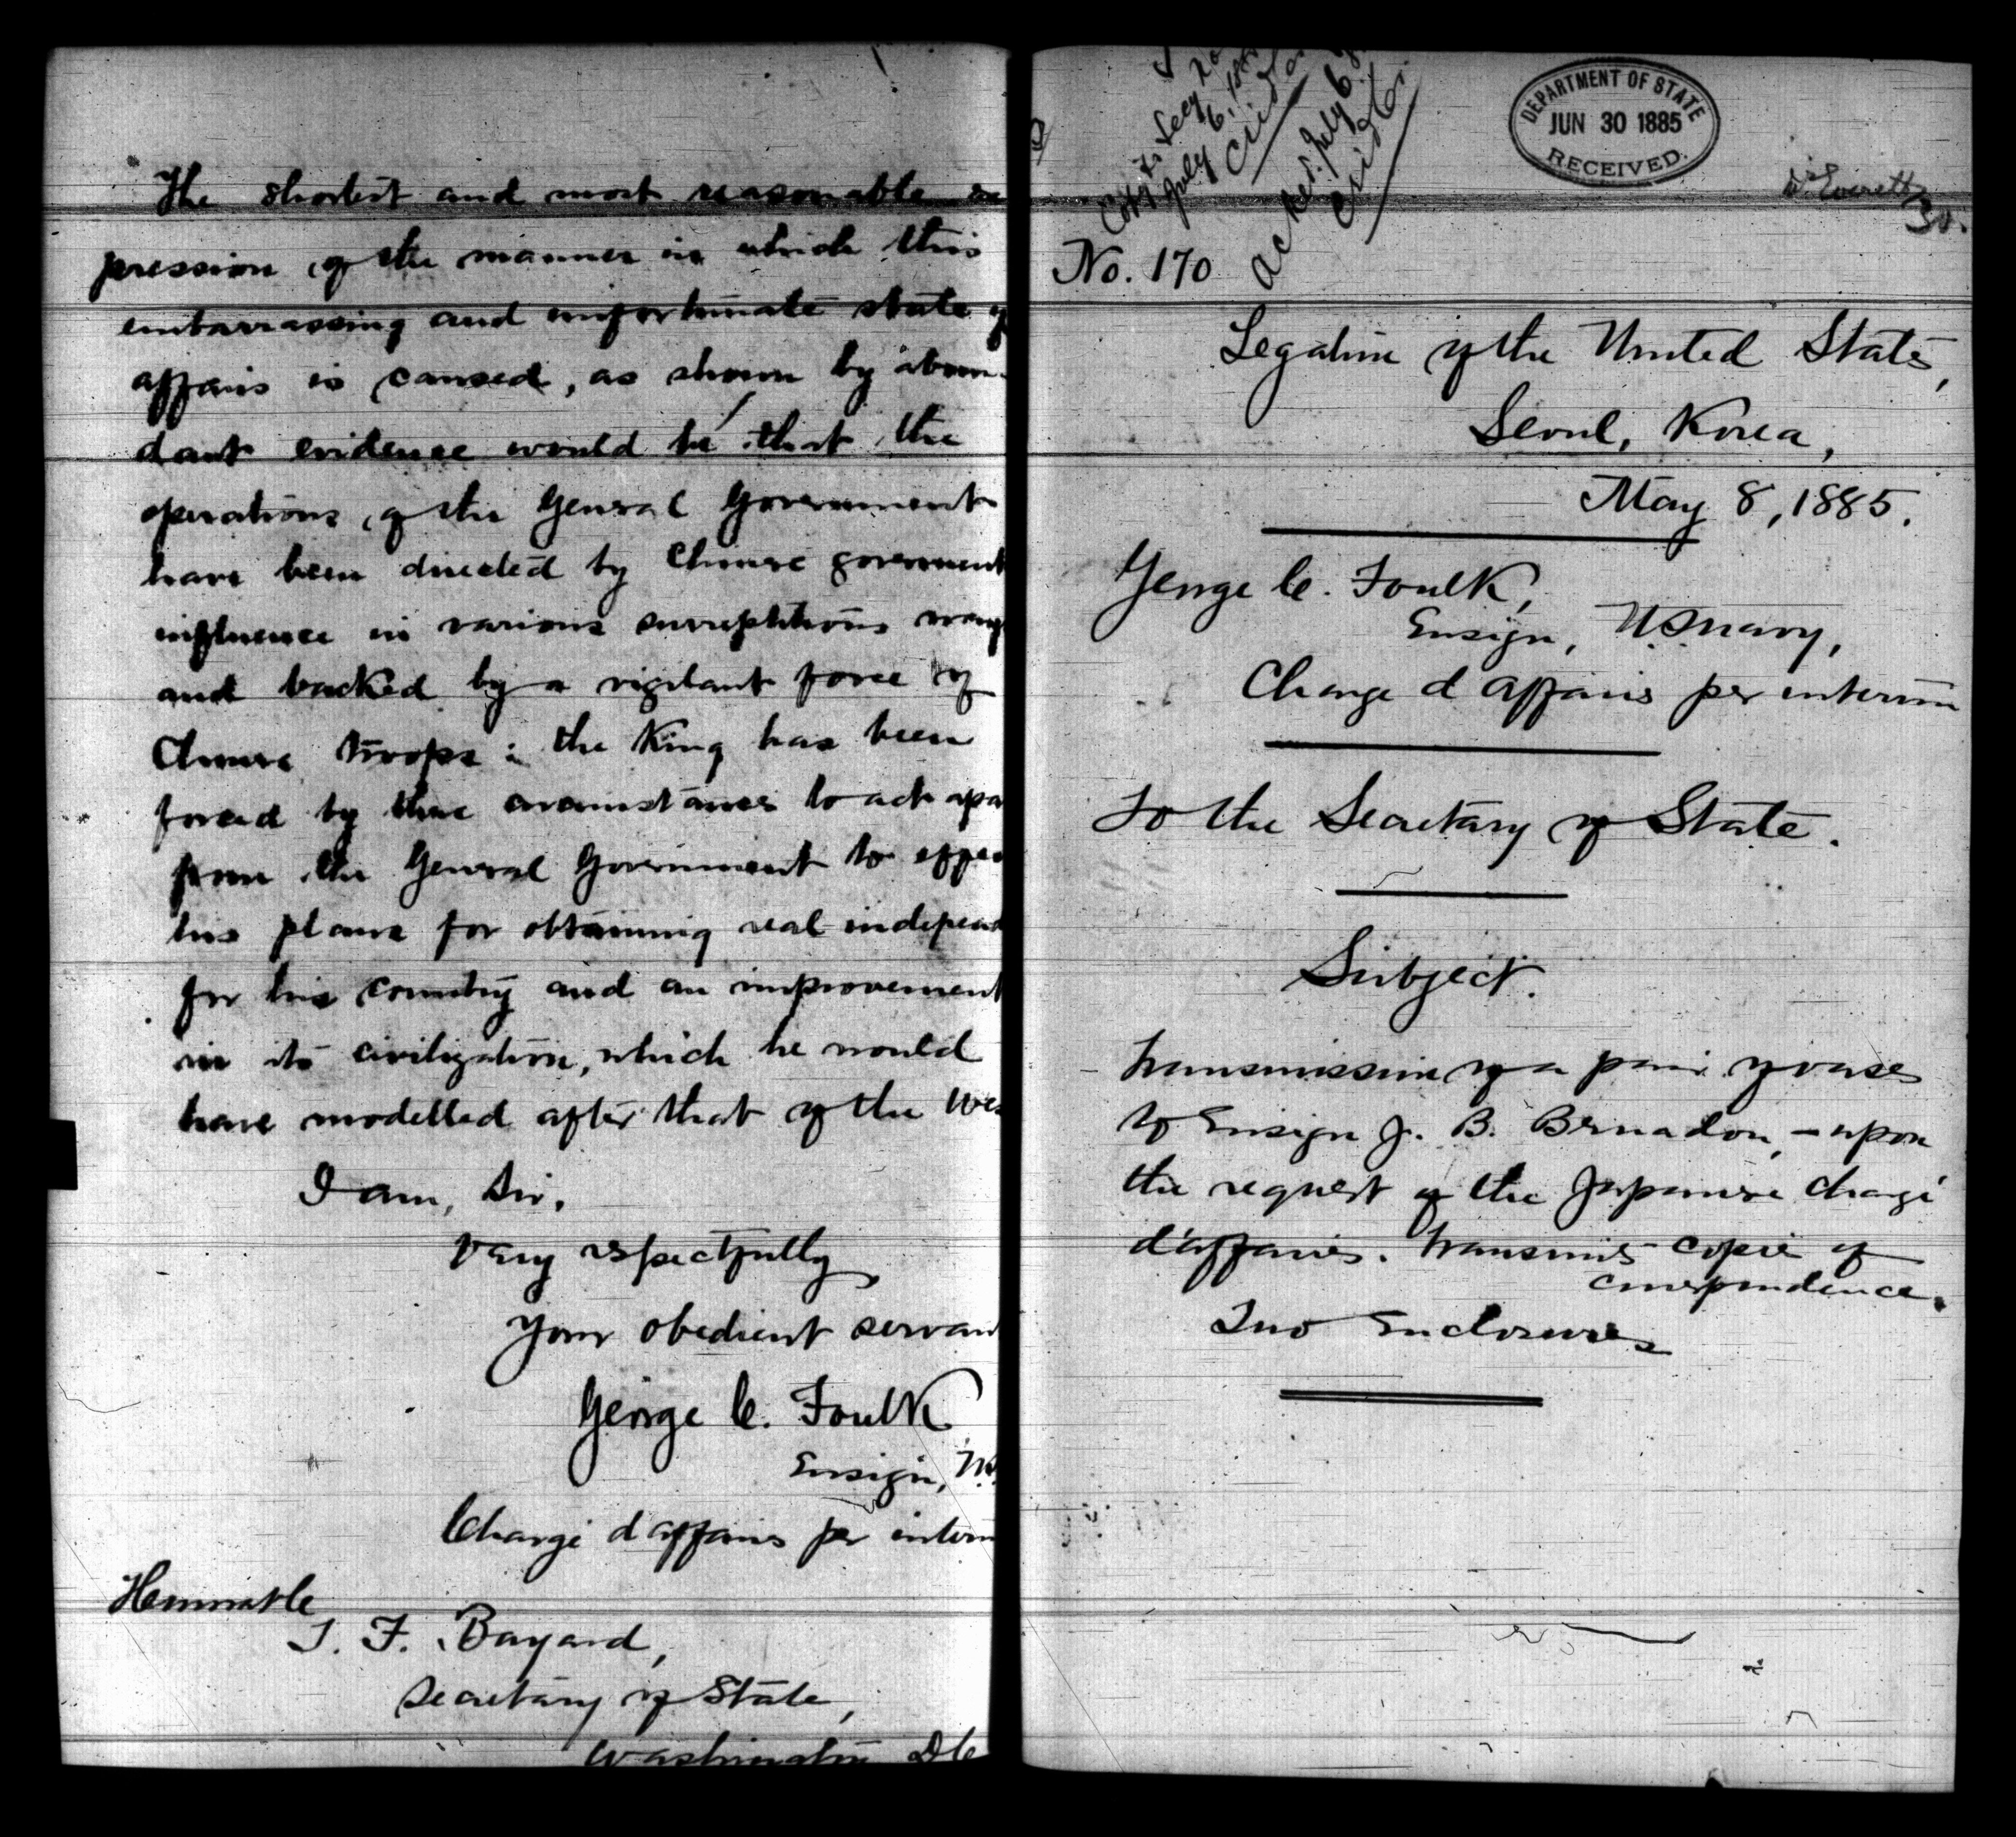 The shortest and most reasonable ex
pression of the manner in which this
embarrassing and unfortunate state of
affairs is caused, as shown by abun-
dant evidence would be that the
operations of the General Government
have been directed by Chinese government
influence in various surreptitious ways
and backed by a vigilant force of
Chinese troops: the King has been
forced by these circumstances to act apa
from the General Government to effec
his plans for obtaining real independ
for his country and an improvement
in its civilization, which he would
have modelled after that of the Wes
I am, Sir,
Very respectfully
Your obedient servan
George C. Foulk
Ensign, U.S.
Chargé d affaires per interim
Honorable
T. F. Bayard,
Secretary of State,
Washington D C
Copy to Secy
July 6, 
Cridler
Acked. July 6
Cridler
DEPARTMENT OF STATE
JUN 30 1885
RECEIVED.
Everett
No. 170
Legation of the United States,
Seoul, Korea,
May 8, 1885.
George C. Foulk,
Ensign, U.S. Navy,
Charge d affaires per interim
To the Secretary of State.
Subject.
Transmission of a pair of vases
to Ensign J. B. Bernadou, - upon
the request of the Japanese chargé
d'affaires. Transmits copies of
correspondence.
Two Enclosures